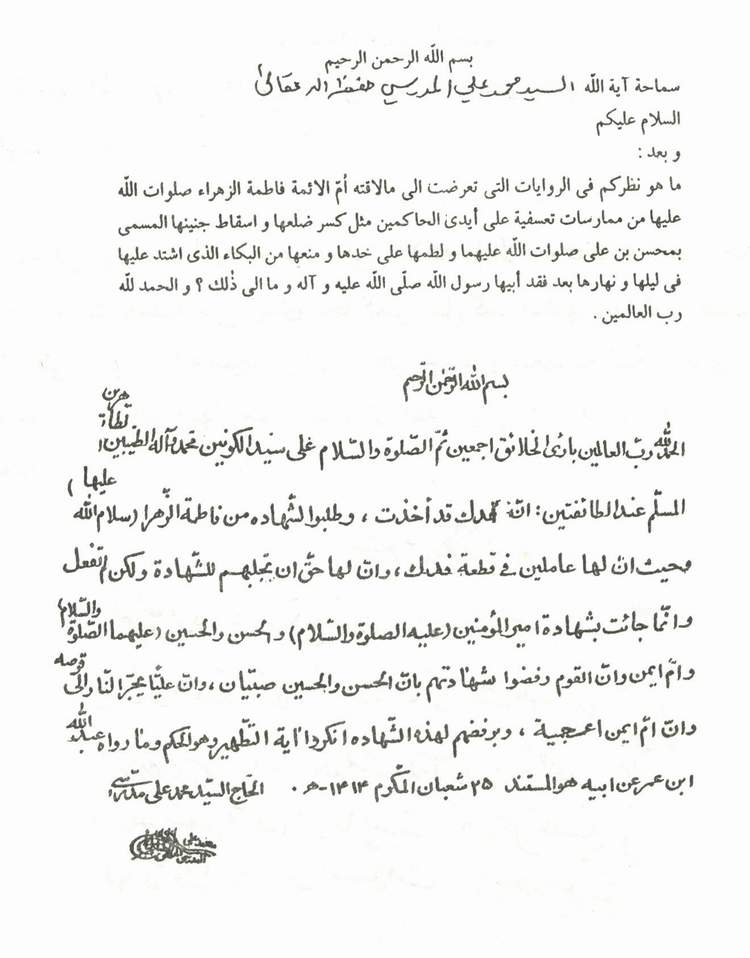 بسم الله الرحمن الرحيم
سماحة آية الله السيد محمد علي المدرسي حفظه الله تعالى
السلام عليكم
و بعد :
ما هو نظركم فى الروايات التى تعرضت الى مالاقته اُمّ الائمة فاطمة الزهراء صلوات الله
عليها من ممارسات تعسفية على أيدى الحاكمين مثل كسر ضلعها و اسقاط جنينها المسمى
بمحسن بن على صلوات الله عليهما و لطمها على خدها و منعها من البكاء الذى اشتد عليها
فى ليلها و نهارها بعد فقد أبيها رسول الله صلّى الله عليه و آله و ما الى ذلك ؟ و الحمد لله
رب العالمين .
بسم الله الرّحمن الرّحيم
الحمد لله ربّ العالمين بارئ الخلائق اجمعين ثمّ الصّلوة والسّلام على سيّد الكونين محمّد وآله الطّيّبين الطاهرين
المسلّم عند الطائفتين : انّ فدك قد أخذت ، وطلبوا الشّهاده من فاطمة الزّهرا (سلام الله عليها)
وحيث انّ لها عاملين في قطعة فدك ، وانّ لها حقّ ان تجلبهم للشّهادة ولكن لم تفعل
وانّما جائت بشهادة امير المؤمنين (عليه الصلوة والسّلام) و الحسن والحسين (عليهما الصّلوة والسّلام)
وامّ ايمن وانّ القوم رفضوا شهادتهم بانّ الحسن والحسين صبيّان ، وانّ عليًّا يجرّ النّار الى قرصه
وانّ امّ ايمن اعجمية ، وبرفضهم لهذه الشّهاده انكروا آية التّطهير وهو الحكم وما رواه عبد الله
ابن عمر عن ابيه هو المستند ٢٥ شعبان المكرّم ١٤١٤ - هـ . الحاج السّيّد محمد علي مدرّسي